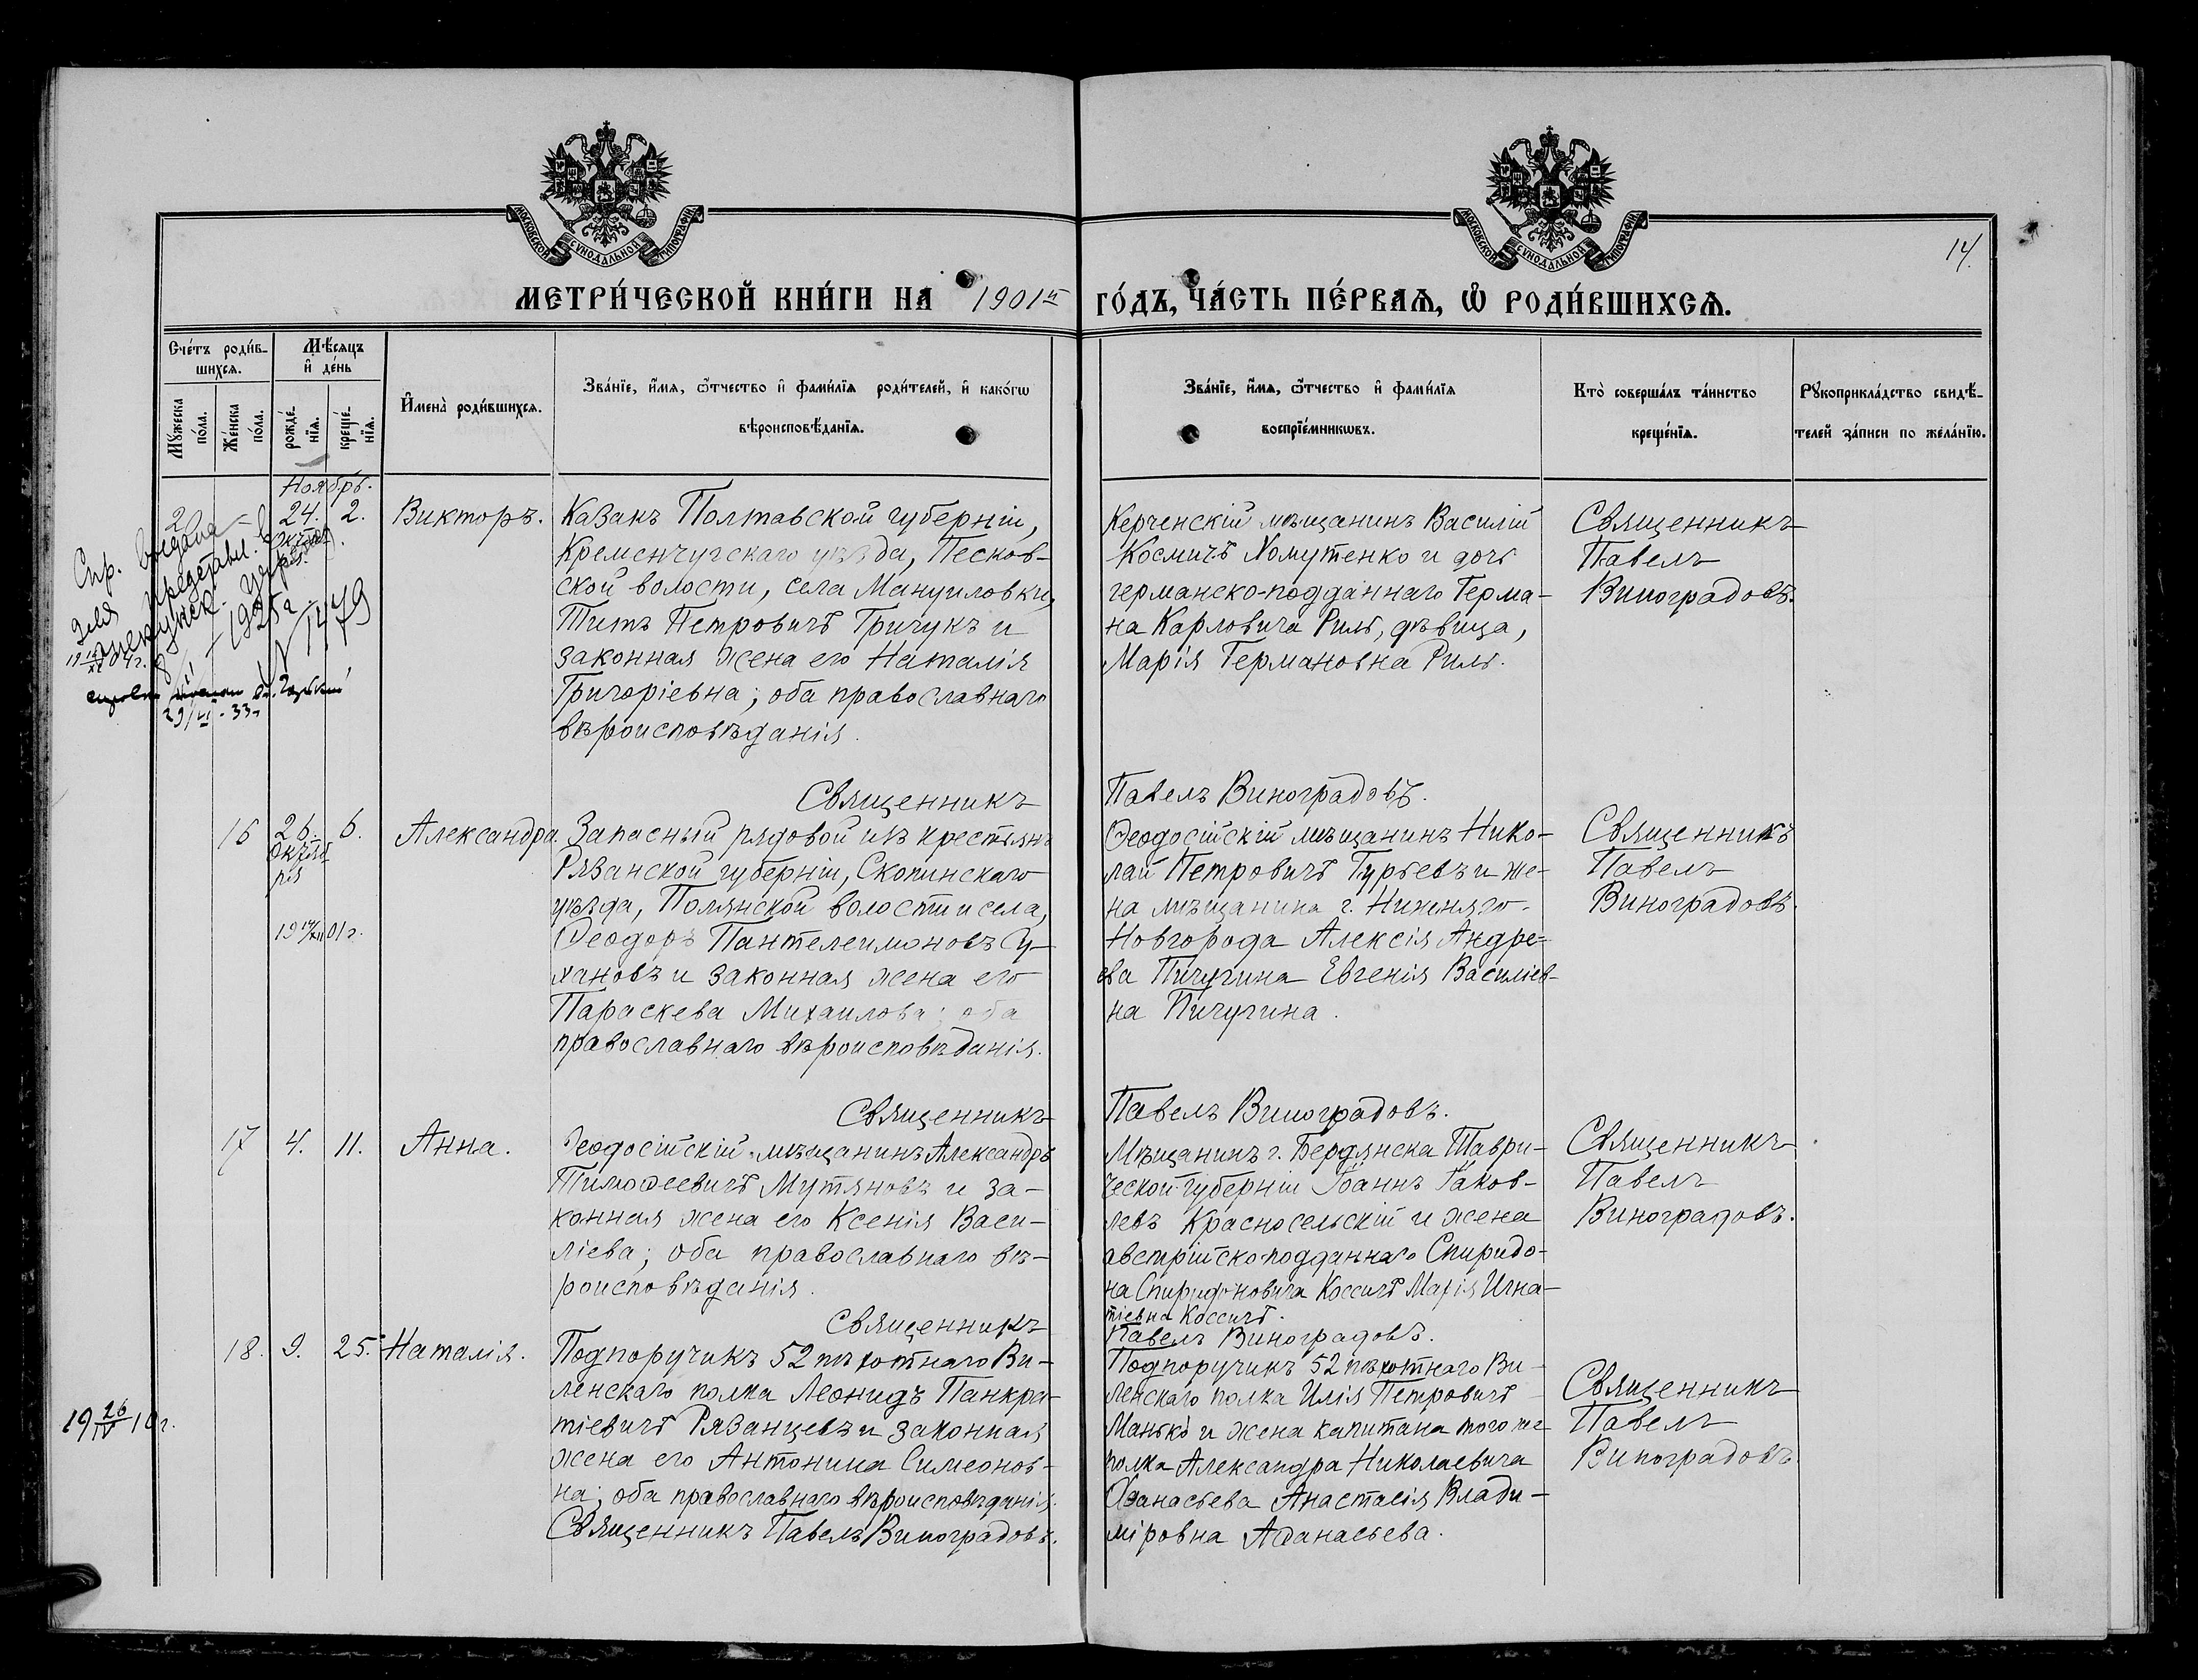 МОСКОВСКОЙ СѴНОДАЛЬНОЙ ТИПОГРАФІИ
МОСКОВСКОЙ СѴНОДАЛЬНОЙ ТИПОГРАФІИ
14.
МЕТРИ́ЧЕСКОЙ КНИ́ГИ НА 1901й ГО́ДЪ, ЧА́СТЬ ПЕ́РВАѦ, Ѡ҆ РОДИ́ВШИХСѦ.
Сче́тъ роди́в-
шихсѧ.
Мꙋ́жеска
по́ла.
Же́нска
по́ла.
Мѣ́сѧцъ
и҆ де́нь
рожде́-
нїѧ.
креще́-
нїѧ.
И҆мена̀ роди́вшихсѧ.
Зва́нїе, и҆́мѧ, ѻ҆́тчество и҆ фами́лїѧ роди́телей, и҆ како́гѡ
вѣроисповѣ́данїѧ.
Зва́нїе, и҆́мѧ, ѻ҆́тчество и҆ фами́лїѧ
воспрїе́мникѡвъ.
Кто̀ соверша́лъ та́инство
креще́нїѧ.
Рꙋкоприкла́дство свидѣ́-
телей за́писи по жела́нїю.
Ноябрь.
24.
2.
Викторъ.
Казакъ Полтавской губерніи,
Кременчугскаго уѣзда, Песков-
ской волости, села Мануиловки,
Титъ Петровичъ Гричукъ и
законная жена его Наталія
Григоріевна; оба православнаго
вѣроисповѣданія.
Керченскій мѣщанинъ Василій
Космичъ Хомутенко и дочь
германско-подданнаго Герма-
на Карловича Риль, дѣвица,
Марія Германовна Риль.
Священникъ
Павелъ
Виноградовъ.
Спр. выдана
для представл. в
1925 г.
№ 1479
Священникъ
Павелъ Виноградовъ.
16
26.
Октяб
ря
6.
Александра.
Запасный рядовой изъ крестьянъ
Рязанской губерніи, Скопинскаго
уѣзда, Полянской волости и села,
Ѳеодоръ Пантелеимоновъ Су-
хановъ и законная жена его
Параскева Михаилова; оба
православнаго вѣроисповѣданія.
Ѳеодосійскій мѣщанинъ Нико-
лай Петровичъ Гурьевъ и же-
на мѣщанина г. Нижняго-
Новгорода Алексія Андре-
ева Пичугина Евгенія Василіев-
на Пичугина.
Священникъ
Павелъ
Виноградовъ.
Священникъ
Павелъ Виноградовъ.
17
4.
11.
Анна.
Ѳеодосійскій мѣщанинъ Александръ
Тимоѳеевичъ Мутяновъ и за-
конная жена его Ксенія Васи-
ліева; оба православнаго вѣ-
роисповѣданія.
Мѣщанинъ г. Бердянска Таври-
ческой губерніи Іоаннъ Іаков-
левъ Красносельскій и жена
австрійско-подданнаго Спиридо-
на Спиридоновича Коссичъ Марія Игна-
тіевна Коссичъ.
Священникъ
Павелъ
Виноградовъ.
Священникъ
Павелъ Виноградовъ.
18.
9.
25.
Наталія.
Подпоручикъ 52 пѣхотнаго Ви-
ленскаго полка Леонидъ Панкра-
тіевичъ Рязанцевъ и законная
жена его Антонина Симеонов-
на; оба православнаго вѣроисповѣданія.
Священникъ Павелъ Виноградовъ.
Подпоручикъ 52 пѣхотнаго Ви-
ленскаго полка Илія Петровичъ
Манько и жена капитана того же
полка Александра Николаевича
Аѳанасьева Анастасія Влади-
міровна Аѳанасьева.
Священникъ
Павелъ
Виноградовъ.
19 26/IV 10 г.